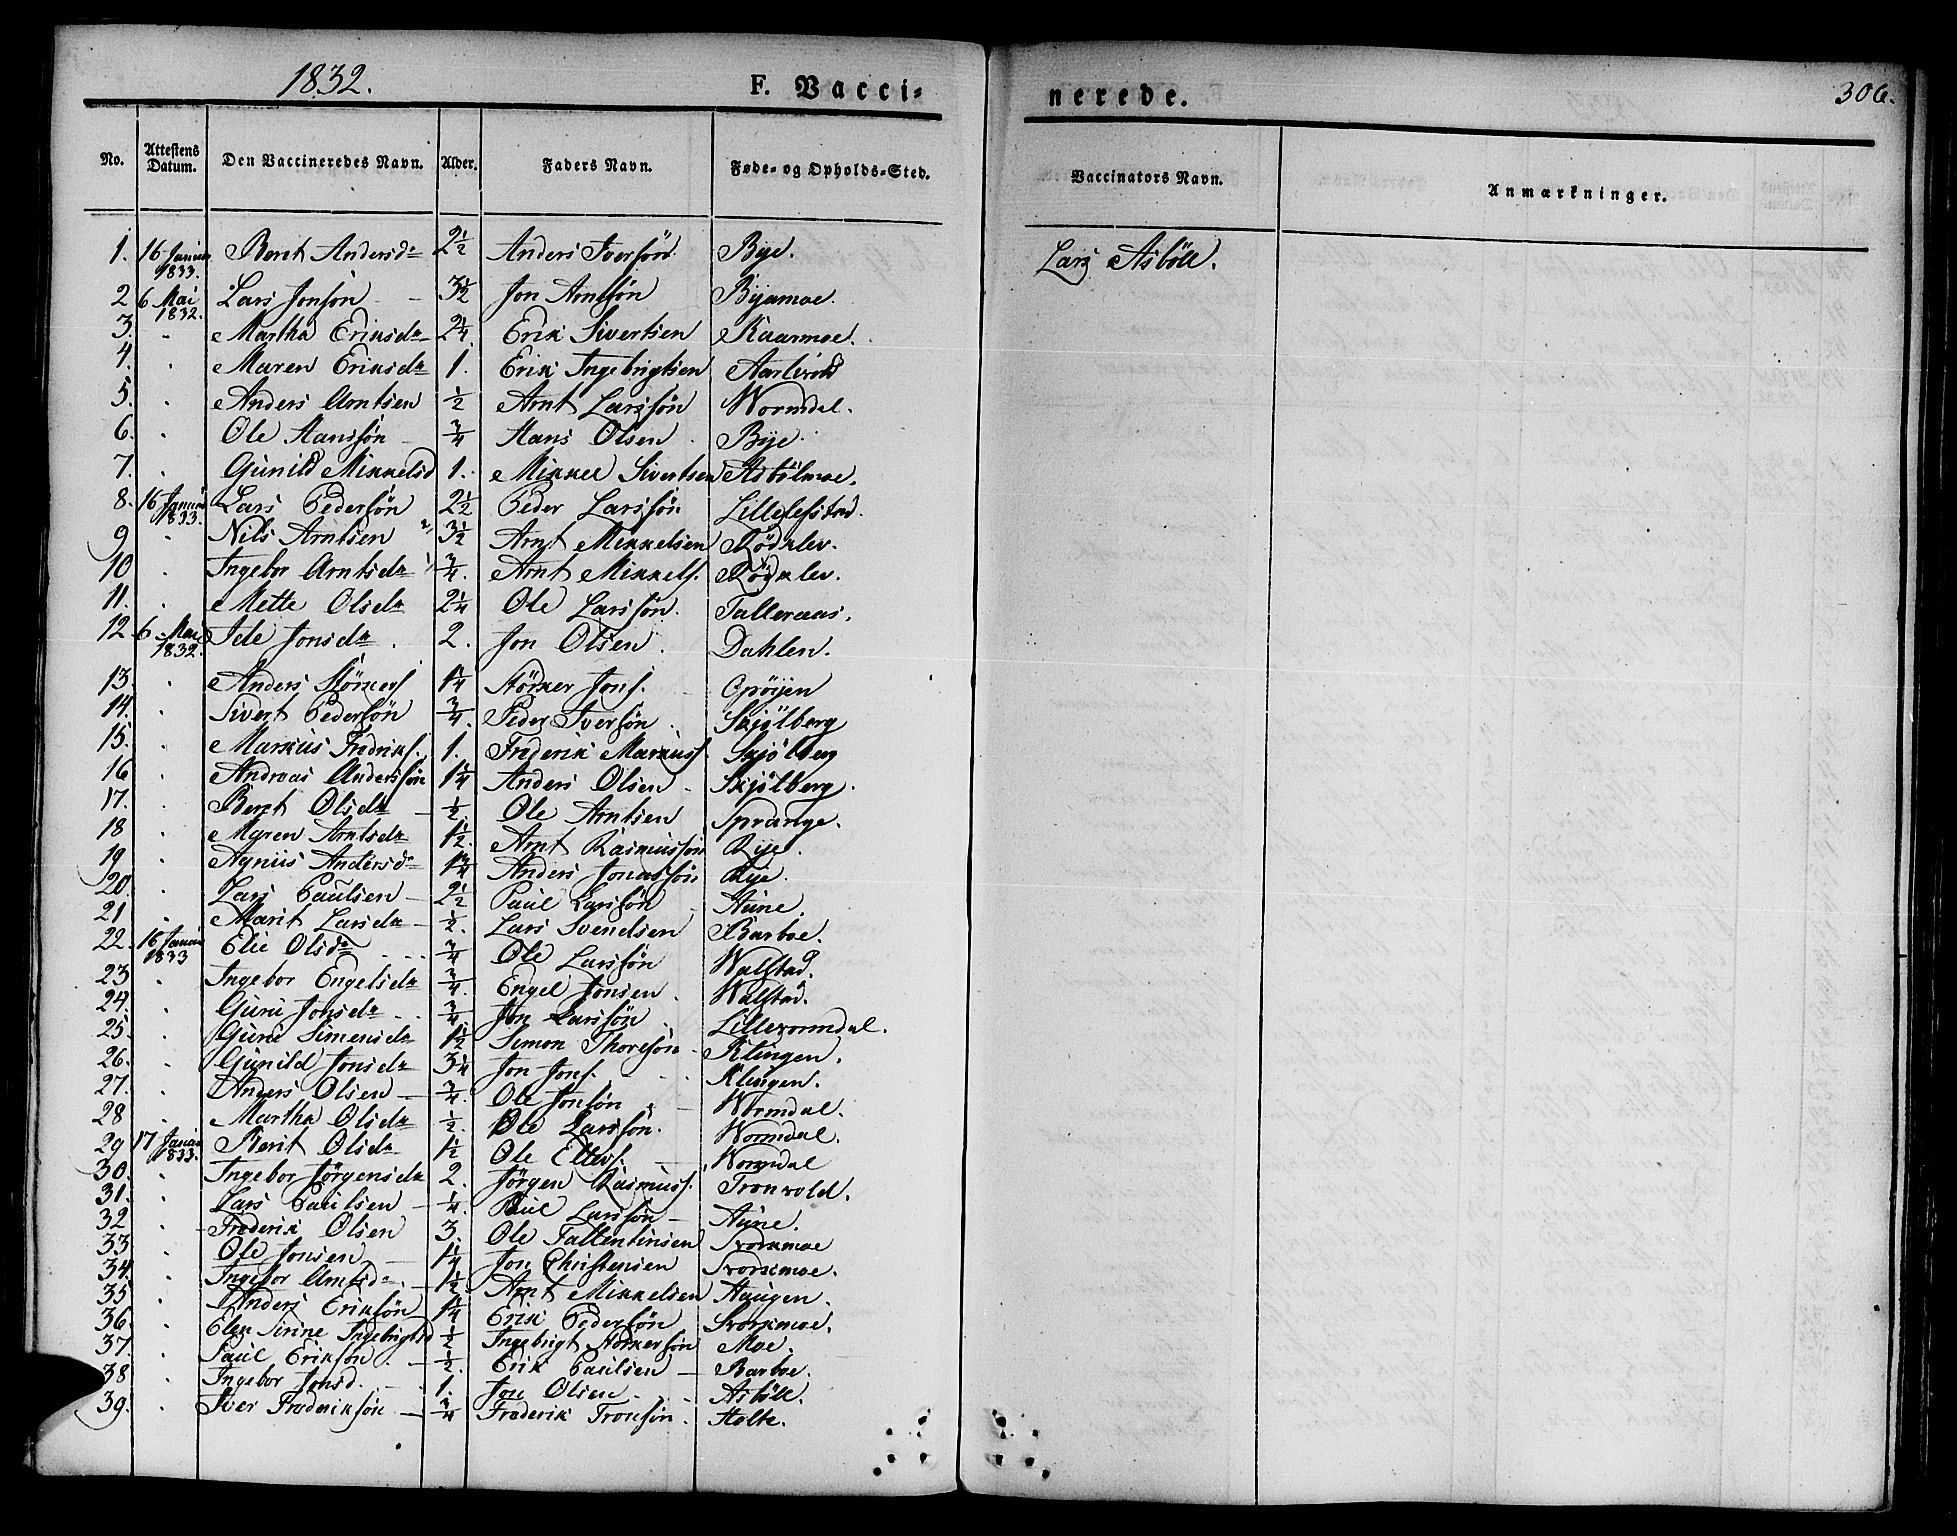 1832.
F. Vacci-
nerede.
306.
No. Attestens Datum. Den Vaccineredes Navn. Alder. Faders Navn. Føde- og Opholds-Sted. Vaccinators Navn. Anmærkninger.
1. 16 Januar 1833. Beret Andersd. 2½ Anders Iversøn Bye. Lars Asböll.
2 6 Mai 1832. Lars Jonsøn 3½ Jon Arntsøn Byamoe.
3. Martha Eriksd. 2¼. Erik Sivertsen Kaarmoe.
4. Maren Eriksd. 1. Erik Ingebrigtsen
5. Anders Arntsen ½ Arnt Larssøn Wormdal.
6. Ole Hanssøn ¾ Hans Olsen Bye.
7. Gunild Mikkelsd 1. Mikkel Sivertsen Asbölmoe.
8. 16 Januar 1833. Lars Pedersøn 2½ Peder Larssøn
9 Nils Arntsen 3½ Arnt Mikkelsen Rödklev.
10 Ingebor Arntsd. ¾. Arnt Mikkels. Rödklev.
11. Mette Olsd. 2¼ Ole Larssøn. Talleraas.
12 6 Mai 1832. Ide Jonsd. 2. Jon Olsen Dahlen.
13. Anders Störkers 1¼ Störker Jons.
14. Sivert Pedersøn ¾. Peder Iversøn Skjölberg
15. Markus Fredriks. 1. Frederik Markuss. Skjölberg
16 Andreas Anderssøn 1¼ Anders Olsen Skjölberg.
17. Beret Olsd. ½ Ole Arntsen Sprange.
18 Maren Arntsd. 1½. Arnt Rasmussøn Rye.
19 Agniis Andersd. 1¾ Anders Jonassøn Rye.
20. Lars Paulsen 2½ Paul Larssøn Aune.
21 Marit Larsd. ½. Lars Svendsen Barboe.
22. 16 Januar 1833 Elie Olsd. ¾ Ole Larssøn Walstad.
23 Ingebor Engelsd. ¾. Engel Jonsen Walstad.
24. Guru Jonsd. ¾ Jon Larssøn Lillevormdal.
25. Guru Simensd. 1½ Simon Thoresøn Klingen.
26. Gunild Jonsd. 3¼ Jon Jons. Klingen.
27. Anders Olsen ¾. Ole Jonsøn Wormdal.
28 Martha Olsd. ½. Ole Larssøn. Wormdal.
29 17 Januar 1833. Berit Olsd. 1½ Ole Ellevs. Wormdal
30. Ingebor Jörgensd. 2. Jörgen Rasmuss. Tronvold.
31. Lars Paulsen ¼. Paul Larssøn Aune.
32 Frederik Olsen 3. Ole Fallentinsen Svorkmoe
33 Ole Jonsen 1¼ Jon Christensen Svorkmoe.
34. Ingebor Arntsd. 1½. Arnt Mikkelsen Haugen.
35 Anders Eriksøn 1¼ Erik Pedersøn Svorkmoe.
36. Elen Sirine Ingebrigtsd ½ Ingebrigt Störkersøn Moe.
37. Paul Eriksøn. ½. Erik Paulsen Barboe.
38 Ingebor Jonsd. 1. Jon Olsen Asböll.
39. Iver Frederiksøn ¾ Frederik Tronsøn. Holte.